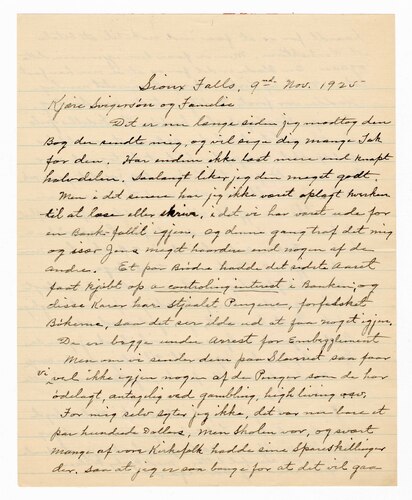 Sioux Falls, 9nd Nov. 1925
Kjære Svigersøn og Familie
Det er nu længe siden jeg modtog den
Bog du sendte mig, og vil sige dig mange Tak
for den. Har endnu ikke læst mere end knapt
halvdelen. Saalangt liker jeg den meget godt.
Men i det senere har jeg ikke vært oplagt hverken
til at læse eller skrive, i det vi har været ude for
en Bank-fallit igjen, og denne gang traf det mig
og især Jens meget haardere end nogen af de
andre. Et par Brødre hadde det sidste Aaret
faat kjøbt op a controling intrest i Banken, og
disse Karer har Stjaalet Pengene, forfalsket
Bøkerne, saa det ser ilde ud at faa noget igjen.
De er begge under Arrest for Embezzlement
Men om vi sender dem paa Slaveriet saa faar
vi vel ikke igjen nogen af de Penger som de har
ødelagt, antagelig ved gambling, high living osv.
For mig selv syter jeg ikke, det var nu bare et
par hundrede Dollars, Men Skolen vor, og svært
mange af vore Kirkefolk hadde sine Spareskillinger
der. saa at jeg er saa bange for at det vil gaa